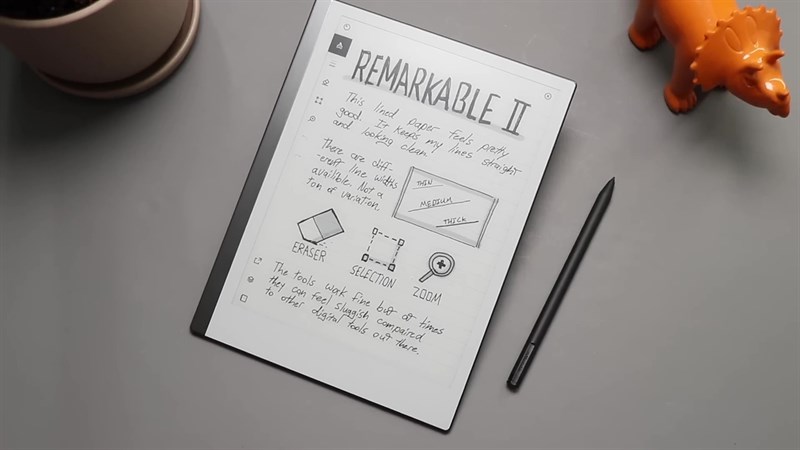 REMARKABLE II
This lined paper feels pretty
good. It keeps my lines straight
and looking clean
There are diff-
-erent line widths
available. Not a
ton of variation.
THIN
MEDIUM
THICK
ERASER
SELECTION
ZOOM
The tools work fine but at times
they can feel sluggish compaired
to other digital tools out there.